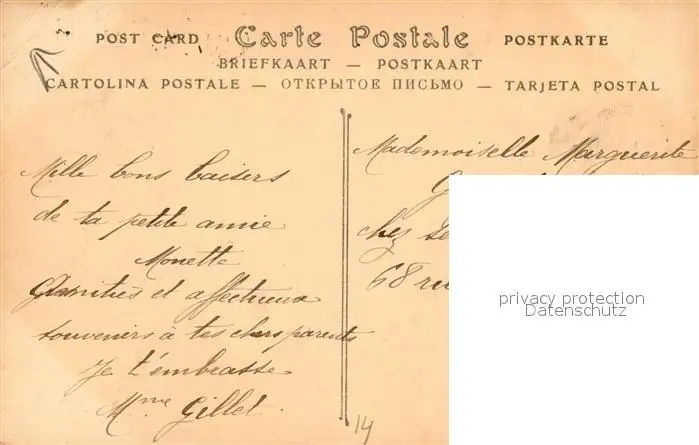 POST CARD Carte Postale POSTKARTE
BRIEFKAART — POSTKAART
CARTOLINA POSTALE — ОТКРЫТОЕ ПИСЬМО — TARJETA POSTAL
Mille bons baisers
de ta petite amie
Monette
et affectueux
souvenirs à tes chers parents
Je t'embrasse
Mme Gillet.
Mademoiselle Marguerite
G
chez Le
68 ru
privacy protection
Datenschutz
14